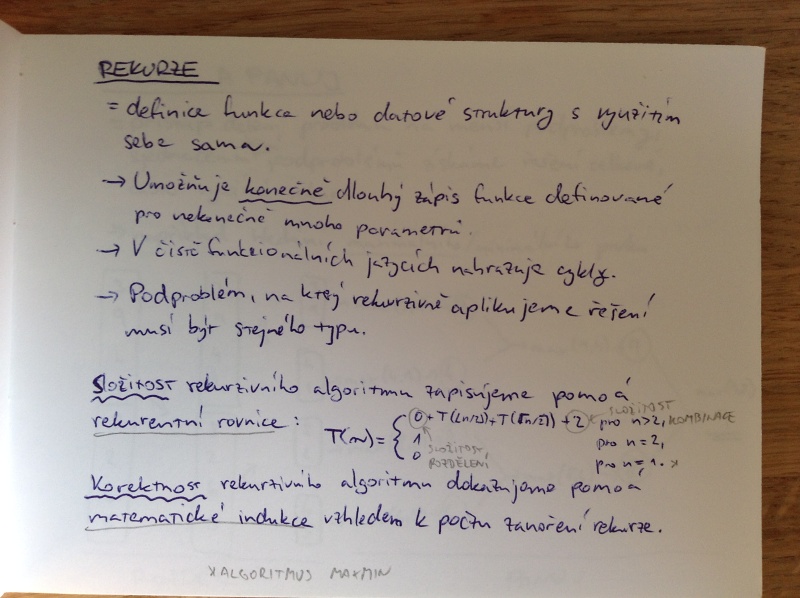 REKURZE
= definice funkce nebo datové struktury s využitím
sebe sama.
→ Umožňuje konečně dlouhý zápis funkce definované
pro nekonečně mnoho parametrů.
→ V čistě funkcionálních jazycích nahrazuje cykly.
→ Podproblém, na krej rekurzivně aplikujeme řešení
musí být stejného typu.
Složitost rekurzivního algoritmu zapisujeme pomocí
rekurentní rovnice: T(n) = { 0 + T(⌊n/2⌋) + T(⌈n/2⌉) + 2 pro n>2,
1 pro n=2,
0 pro n=1. x
SLOŽITOST KOMBINACE
SLOŽITOST ROZDĚLENÍ
Korektnost rekurzivního algoritmu dokazujeme pomocí
matematické indukce vzhledem k počtu zanoření rekurze.
x ALGORITMUS MAXMIN